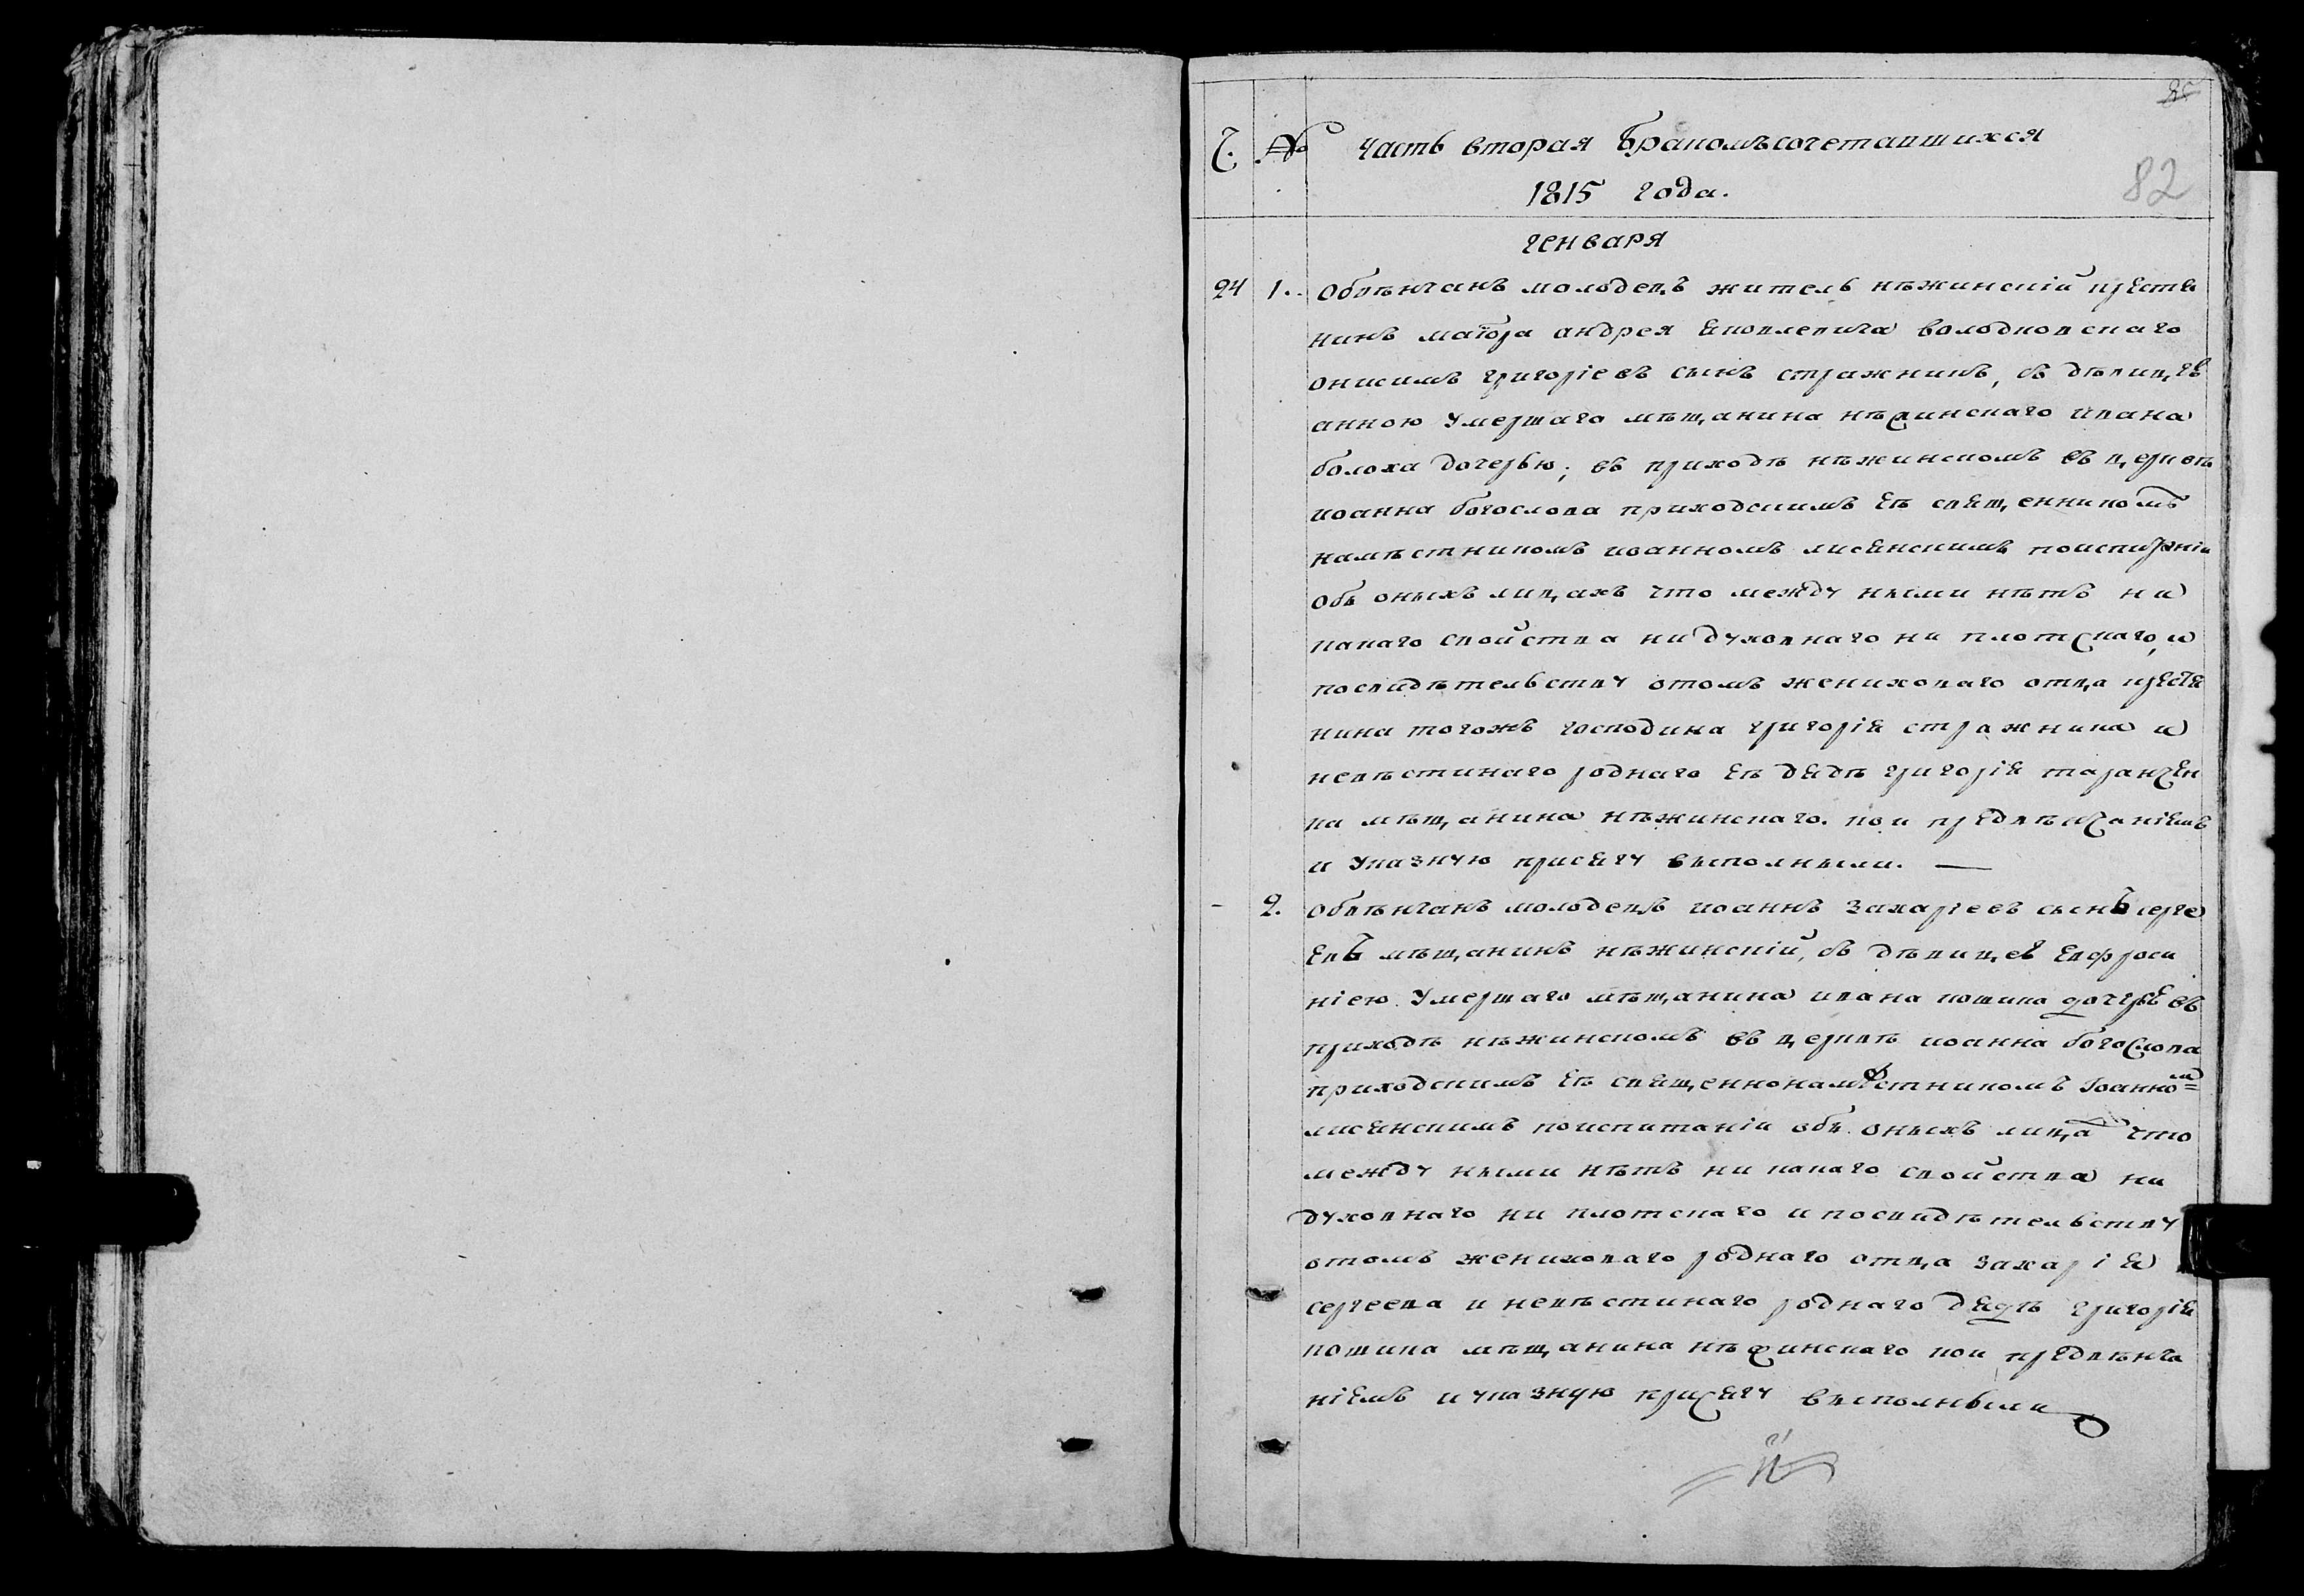 Ч. № Часть вторая Бракомъ сочетавшихся
82
1815 года.
генваря
24 1. Обвѣнчанъ молодецъ житель нѣжинскій крестя
нинъ маіора андрея яковлевича володковскаго
онисимъ григоріевъ сынъ стражникъ, съ дѣвицею
анною умершаго мѣщанина нѣжинскаго ивана
болоха дочерью; въ приходѣ нѣжинскомъ въ церквѣ
иоанна богослова приходскимъ еѣ священникомъ
намѣстникомъ иоанномъ лисянскимъ по испытаніи
объ оныхъ лицахъ что между ными нѣтъ ни
какаго свойства ни духовнаго ни плотскаго, и
по свидѣтельству о томъ женихового отца крестя
нина тогожъ господина григорія стражника и
невѣстинаго роднаго еѣ дядѣ григорія таранчен
ка мѣщанина нѣжинскаго. кои предъ вѣнчаніемъ
и указную присягу выполныли. —
- 2. обвѣнчанъ молодецъ иоаннъ захаріевъ сынъ серге
евъ мѣщанинъ нѣжинскій, съ дѣвицею евфроси
ніею умершаго мѣщанина ивана кошика дочерью въ
приходѣ нѣжинскомъ въ церквѣ иоанна богослова
приходскимъ еѣ священнонамѣстникомъ Іоанномъ
лисянскимъ по испитаніи объ оныхъ лицахъ что
между ными нѣтъ ни какаго свойства ни
духовнаго ни плотскаго и по свидѣтельству
о томъ жениховаго роднаго отца захарія
сергеева и невѣстинаго роднаго дядѣ григорія
кошика мѣщанина нѣжинскаго кои предъ вѣнча
ніемъ и указную присягу выполныли